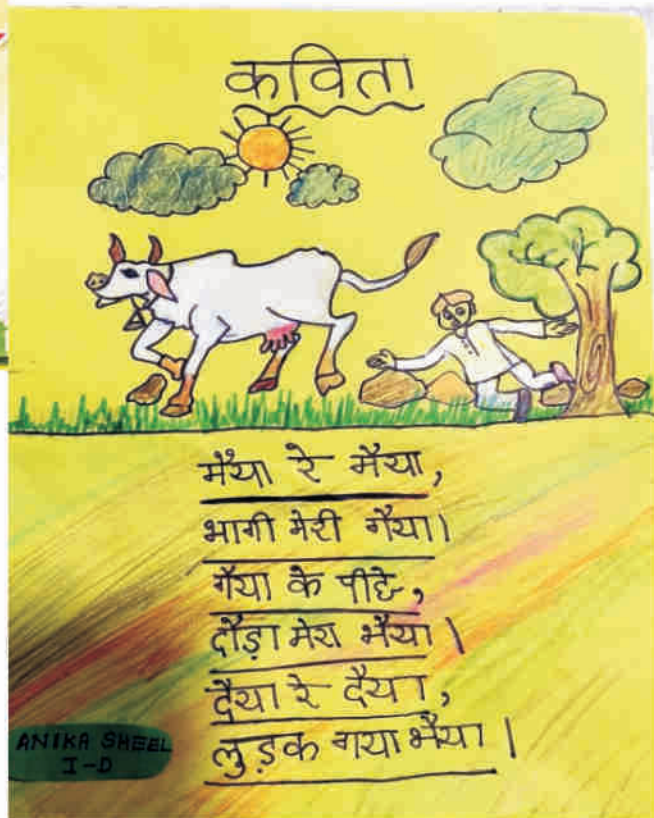 कविता
मैया रे मैया,
भागी मेरी गैया।
गैया के पीछे,
दौड़ा मेरा भैया।
दैया रे दैया,
लुड़क गया भैया।
ANIKA SHEEL
I-D